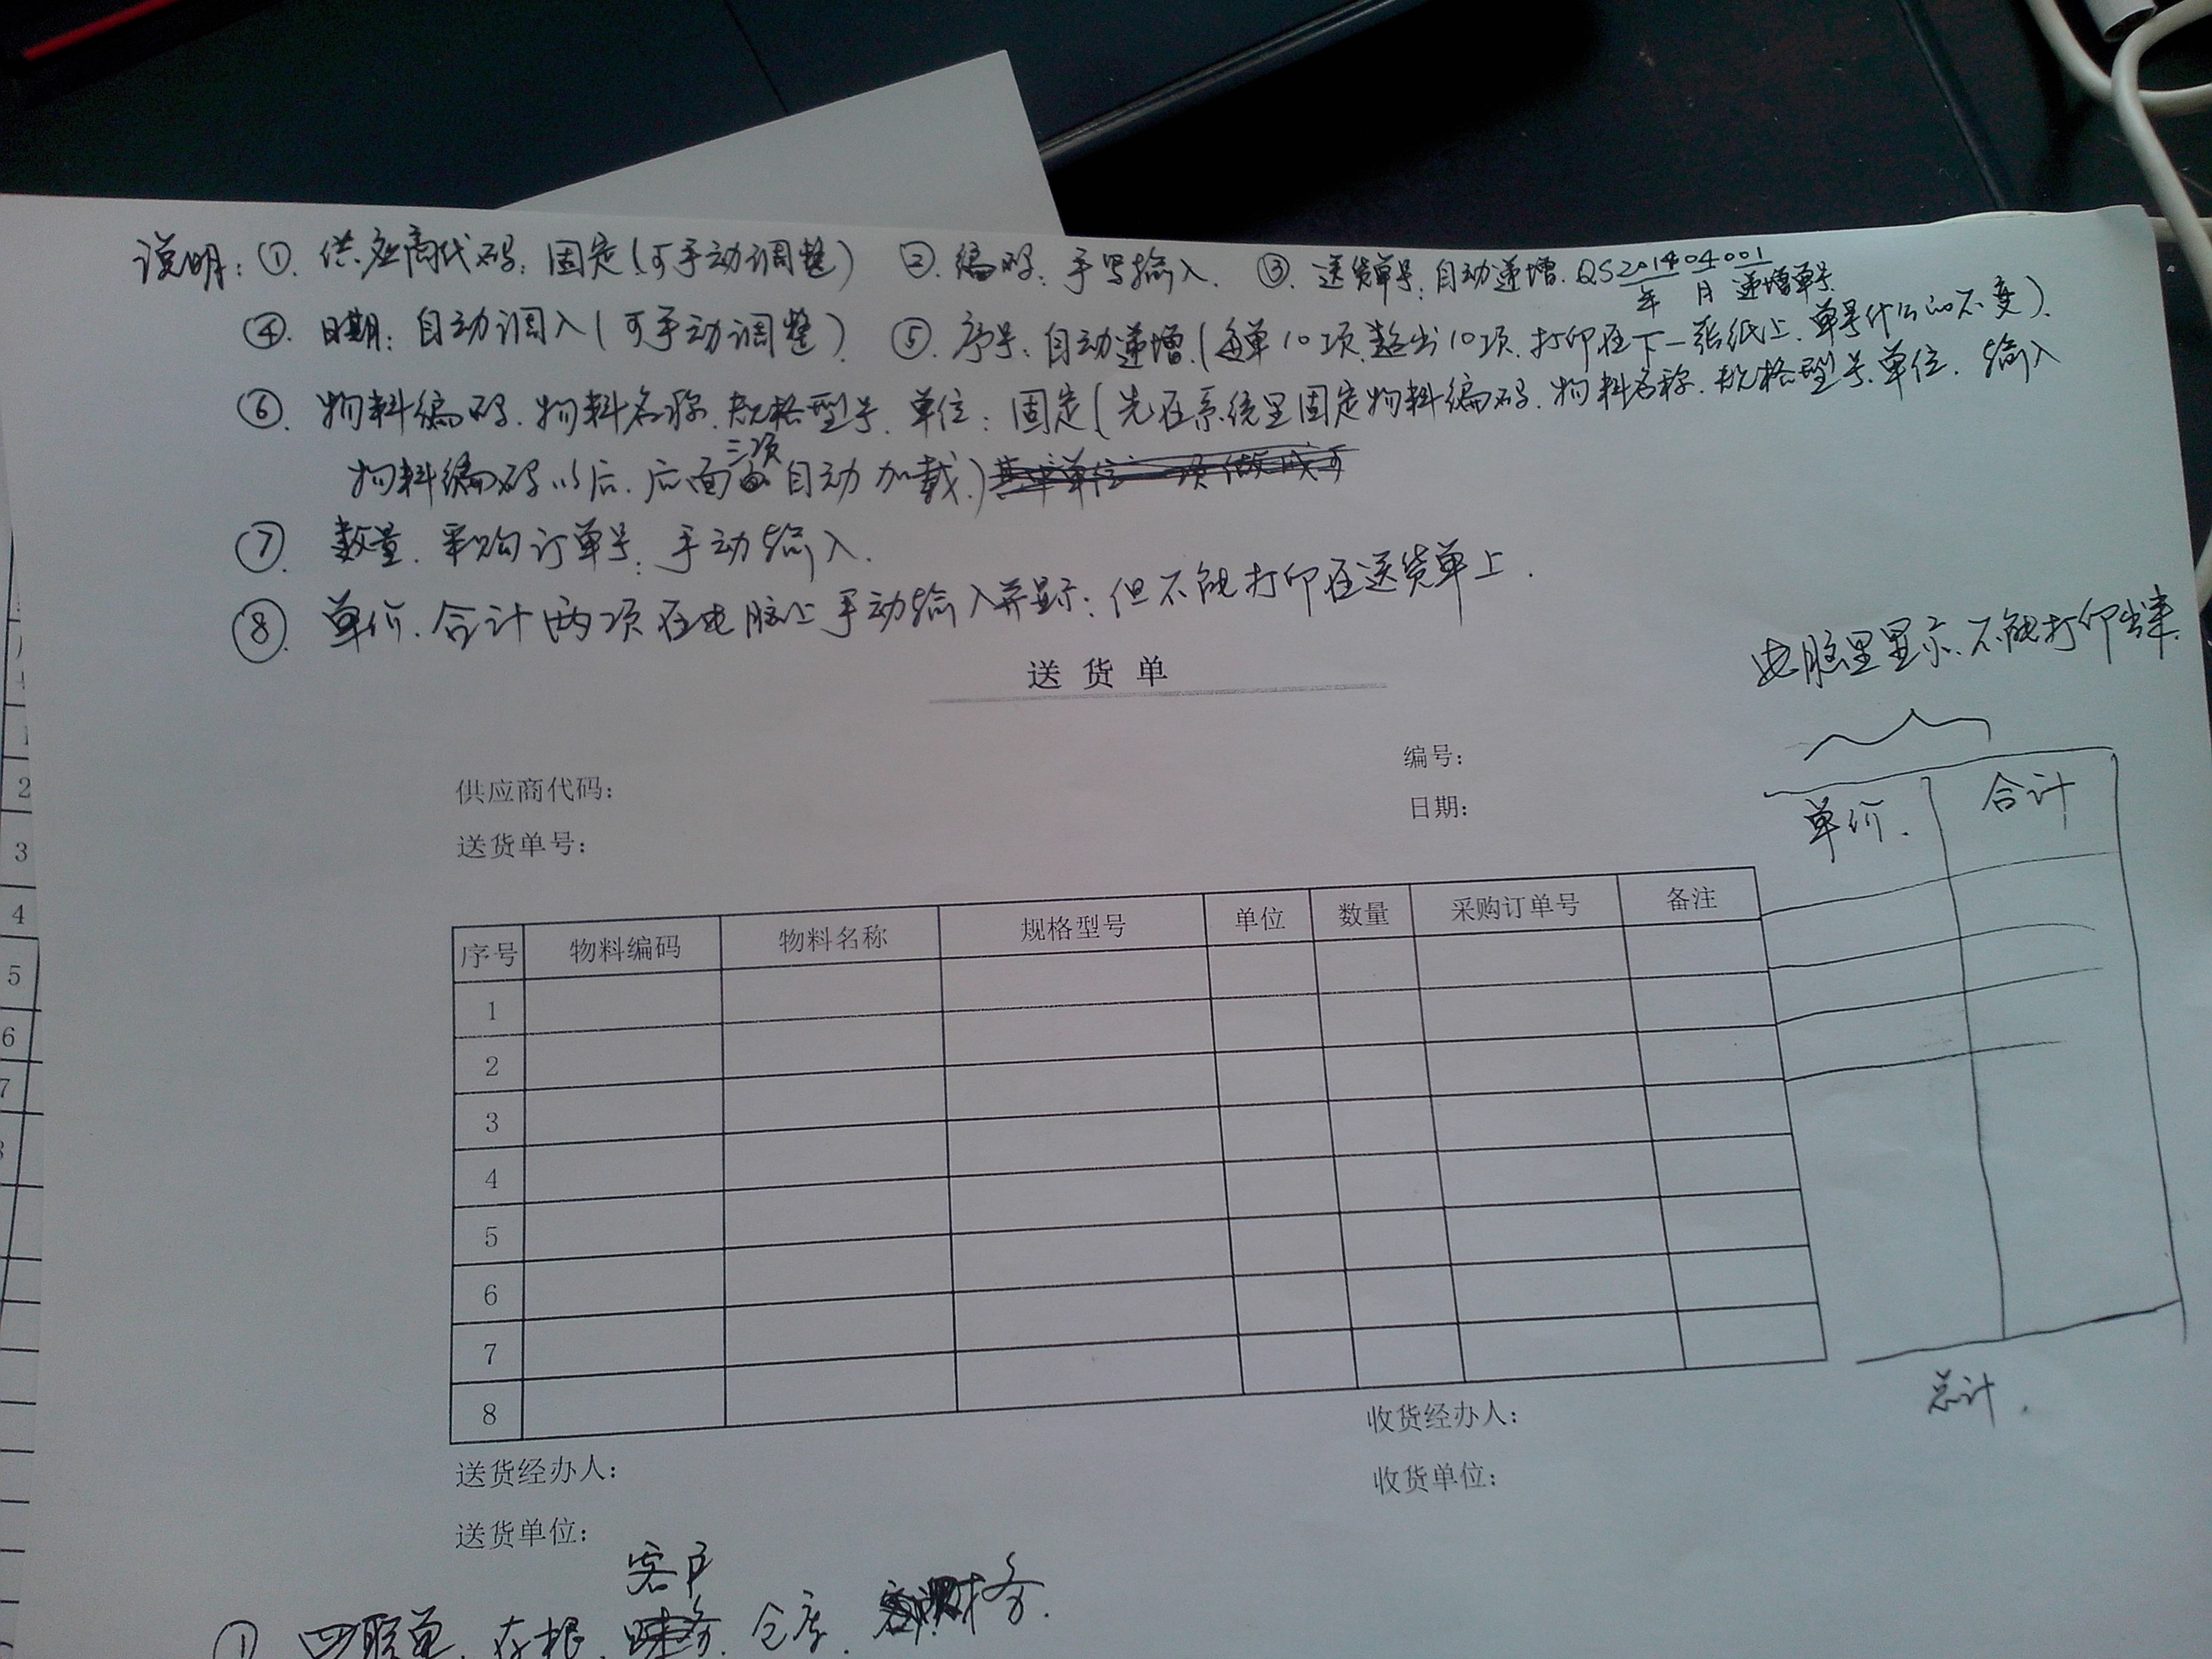 说明：①．供应商代码：固定（可手动调整） ②．编码：手写输入． ③．送货单号：自动递增．QS201404001
年 月 递增单号
④．日期：自动调入（可手动调整） ⑤．序号：自动递增．（每单10项，超出10项．打印在下一张纸上．单号什么的不变）．
⑥．物料编码．物料名称．规格型号．单位：固定（先在系统里固定物料编码．物料名称．规格型号．单位．输入
物料编码以后．后面三项自动加载．）
⑦．数量．采购订单号：手动输入．
⑧．单价．合计两项在电脑上手动输入并显示：但不能打印在送货单上．
电脑里显示．不能打印出来．
送货单
编号：
供应商代码：
日期：
送货单号：
单价． 合计
序号 物料编码 物料名称 规格型号 单位 数量 采购订单号 备注
1
2
3
4
5
6
7
8
总计．
收货经办人：
送货经办人：
收货单位：
送货单位：
客户
① 四联单．存根． 仓库． 财务．
2
3
4
5
6
7